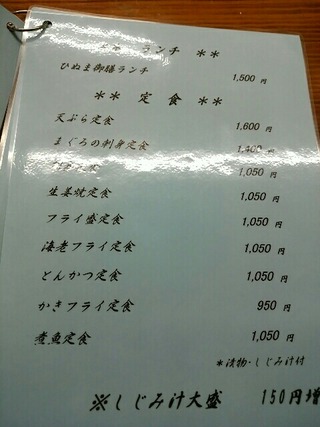 ランチ **
ひぬま御膳ランチ 1,500 円
** 定 食 **
天ぷら定食 1,600 円
まぐろの刺身定食 1,400 円
1,050 円
生姜焼定食 1,050 円
フライ盛定食 1,050 円
海老フライ定食 1,050 円
とんかつ定食 1,050 円
かきフライ定食 950 円
煮魚定食 1,050 円
*漬物・しじみ汁付
※しじみ汁大盛 150円増